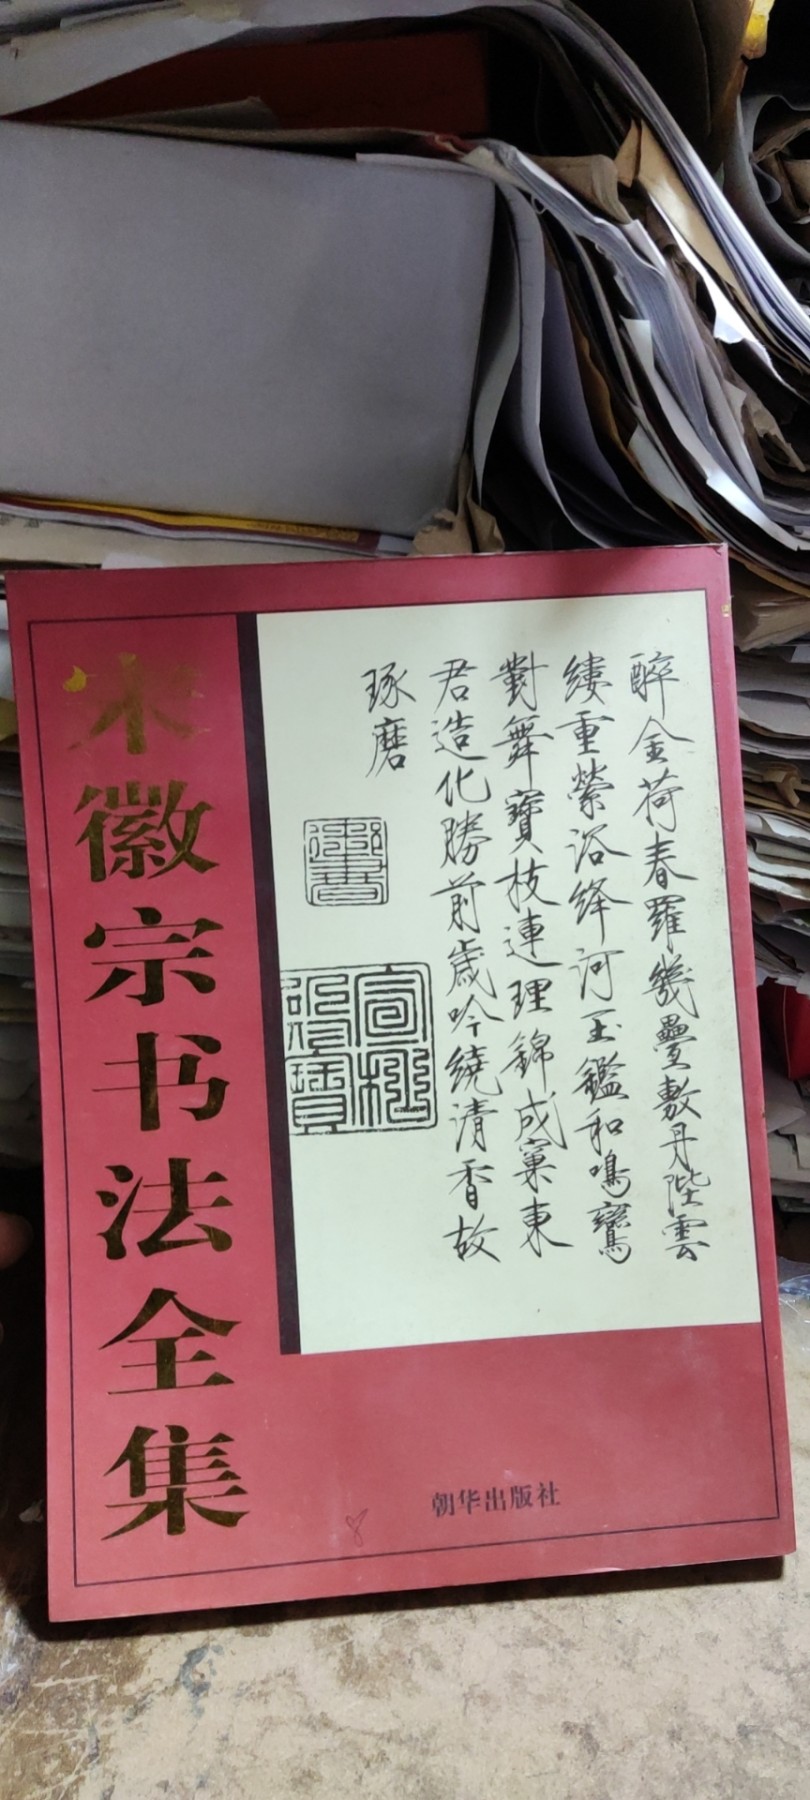 宋徽宗书法全集
醉金荷春羅幾疊敷丹陛雲
縷重縈浴絳河玉鑑和鳴鸞
對舞寶枝連理錦成窠東
君造化勝前歲吟繞清香故
琢磨
御書
宣和
殿寶
朝华出版社
8